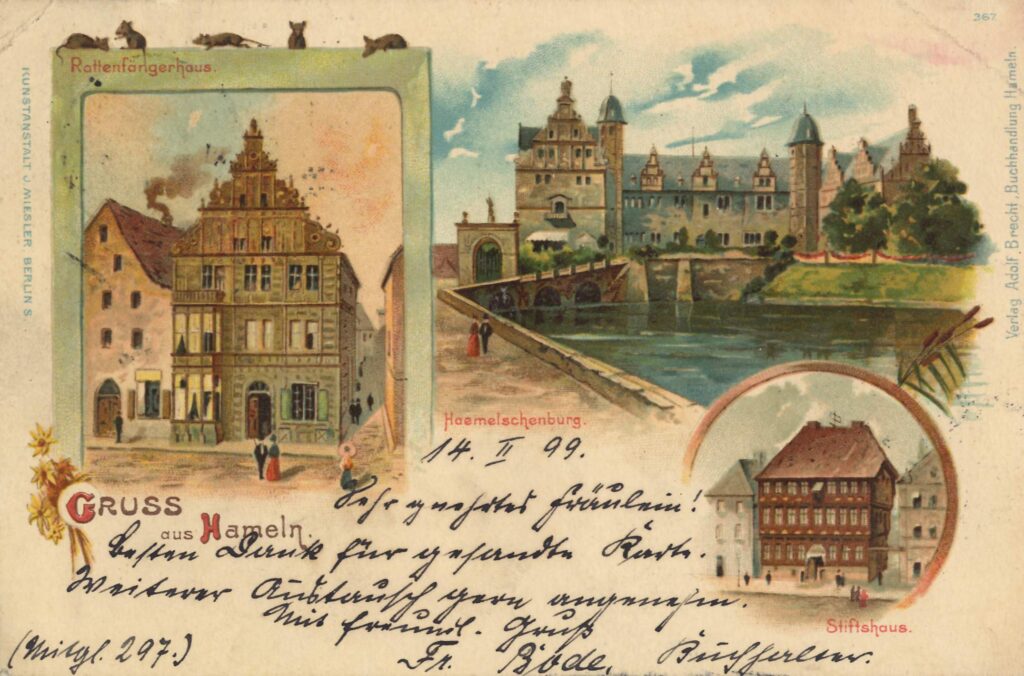 367
Rattenfängerhaus.
KUNSTANSTALT J. MIESLER, BERLIN S.
Verlag Adolf Brecht, Buchhandlung Hameln.
Haemelschenburg.
14. II 99.
GRUSS
aus Hameln.
Sehr geehrtes Fräulein!
Besten Dank für gesandte Karte.
Weiterer Austausch gern angenehm.
Mit freundl. Gruß
(Mitgl. 297.)
Fr. Bode, Buchhalter.
Stiftshaus.